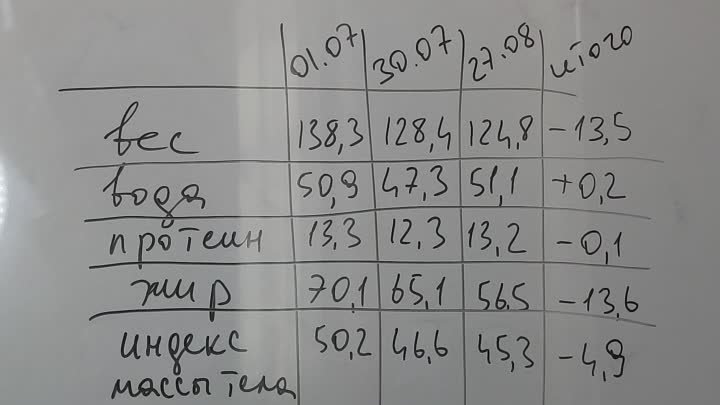 01.07 30.07 27.08 итого
вес 138,3 128,4 124,8 -13,5
вода 50,9 47,3 51,1 +0,2
протеин 13,3 12,3 13,2 -0,1
жир 70,1 65,1 56,5 -13,6
индекс 50,2 46,6 45,3 -4,9
массы тела